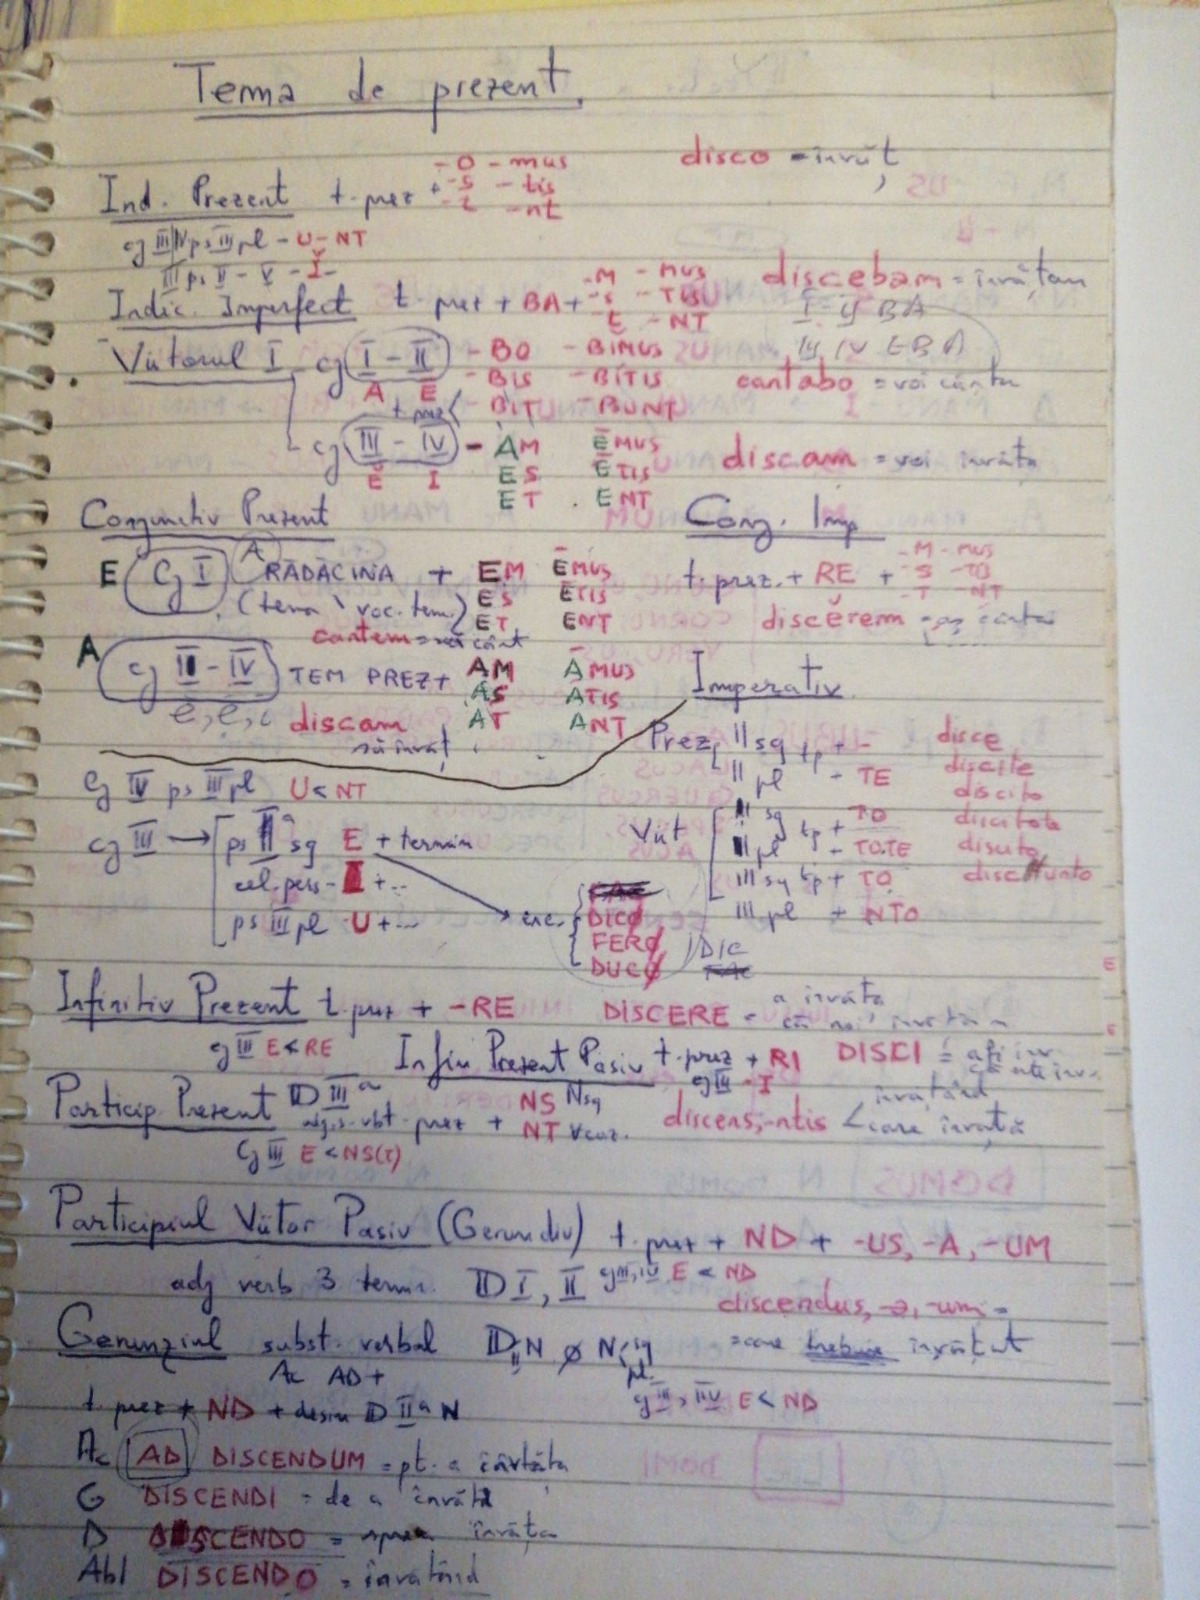 Tema de prezent.
Ind. Prezent t. prez + -O -mus disco = învăț
-S -tis
-t -nt
cj III IV ps III pl - U-NT
III ps II - V - Ĭ-
Indic. Imperfect t prez + BA + -M -MUS discebam = învățam
-S -TIS I-II BA
-t -NT III IV EBA
Viitorul I cj I-II -BO -BIMUS
A E -BIS -BITIS cantabo = voi cânta
t prez -BIT -BUNT
cj III-IV - AM ĒMUS discam = voi învăța
Ĕ I ES ĒTIS
ET ENT
Conjunctiv Prezent Conj. Imp
E Cj I A RĂDĂCINA + EM ĒMUS t. prez. + RE + -M -MUS
(tema \ voc. tem.) ES ĒTIS -S -TIS
ET ENT -T -NT
cantem = să cânt discĕrem
A cj II-IV TEM PREZ + AM ĀMUS Imperativ
e, ĕ, i AS ĀTIS
discam AT ANT
să învăț
Prez II sg tp + - disce
II pl - TE discite
Cj IV ps III pl U < NT
cj III → ps II sg E + termin
cel. pers - I + ...
ps III pl U + ...
Viit II sg tp + TO discito
II pl - TOTE discitote
III sg tp + TO discito
III pl + NTO discunto
exc. DICO
FERO DIC
DUCO
Infinitiv Prezent t. prez + -RE DISCERE = a învăța
cj III E < RE Infin Prezent Pasiv t. prez + RI DISCI = a fi înv.
cj III - I
Particip. Prezent D III a NS Nsg învățând
adj. t. prez + NT discens, -ntis < care învață
Cj III E < NS(T)
Participiul Viitor Pasiv (Gerundiv) t. prez + ND + -US, -A, -UM
adj verb 3 term. D I, II cj III, IV E < ND
discendus, -a, -um =
Gerunziul subst. verbal D II N ø N sg = care trebuie învățat
Ac AD + pl.
t. prez + ND + desin D II a N cj III, IV E < ND
Ac AD DISCENDUM = pt. a
G DISCENDI = de a învăța
D DISCENDO = spre a învăța
Abl DISCENDO = învățând